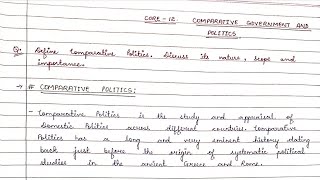 CORE - 12. COMPARATIVE GOVERNMENT AND
POLITICS
Q. Define Comparative Politics. Discuss its nature, scope and
importance.
→ # COMPARATIVE POLITICS:
- Comparative Politics is the study and appraisal of
Domestic Politics across different countries. Comparative
Politics has a long and very eminent history dating
back just before the origin of systematic political
studies in the ancient Greece and Rome.